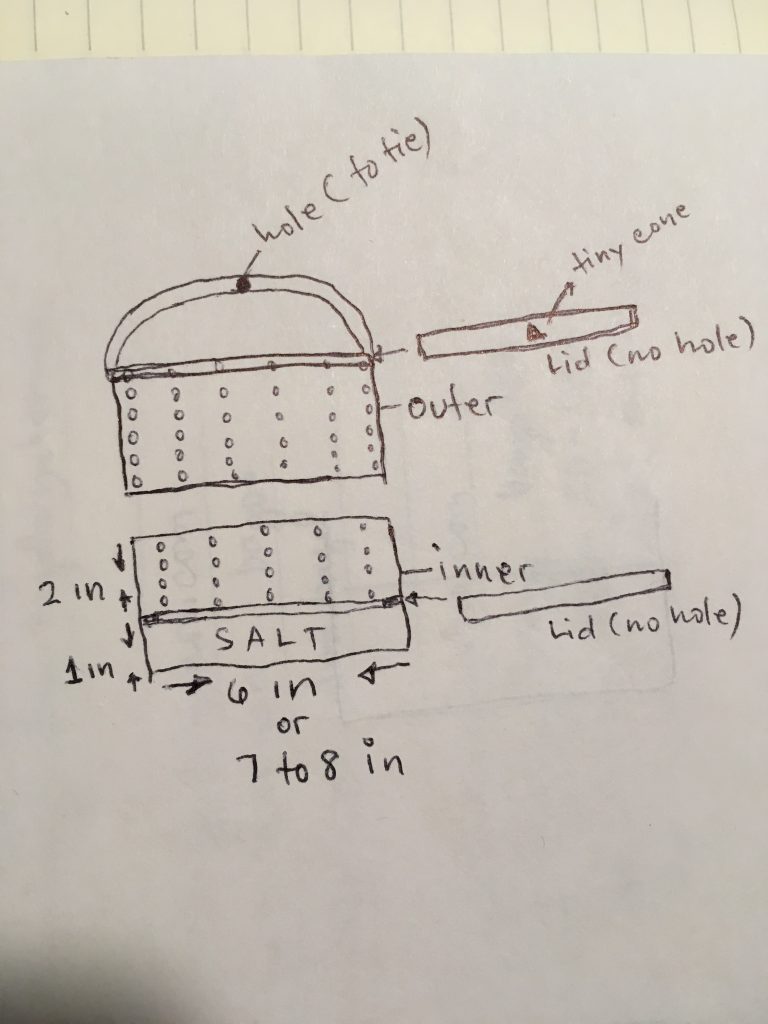 hole (to tie)
tiny cone
Lid (no hole)
outer
inner
2 in
Lid (no hole)
SALT
1 in
6 in
or
7 to 8 in